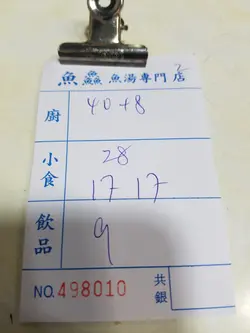 魚鱻魚湯專門店
廚 40+8
小食 28
17 17
飲品 9
NO.498010 共銀